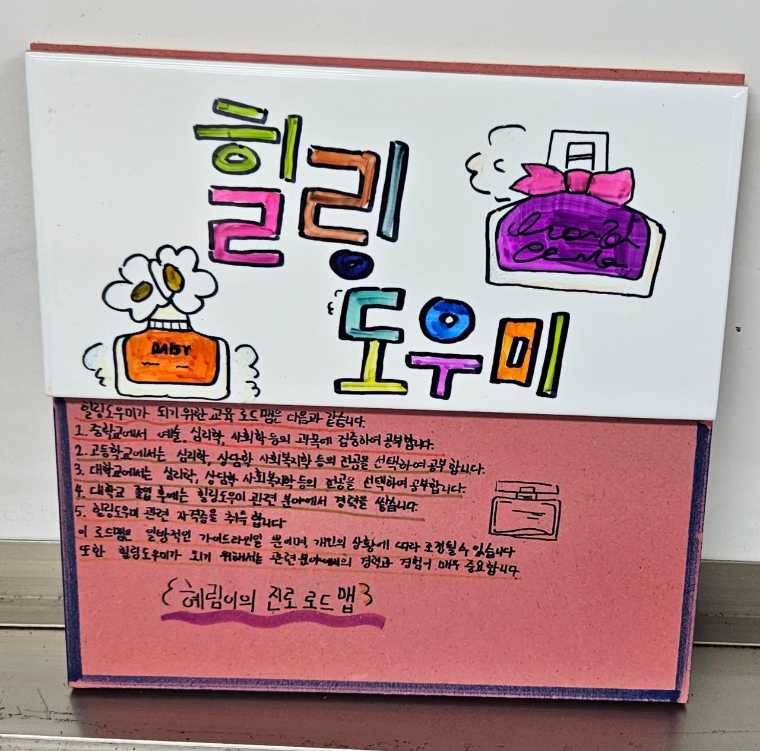 힐링
도우미
DAISY
힐링도우미가 되기 위한 교육 로드맵은 다음과 같습니다.
1. 중학교에서 예술, 심리학, 사회학 등의 과목에 집중하여 공부합니다.
2. 고등학교에서는 심리학, 상담학 사회복지학 등의 전공을 선택하여 공부합니다.
3. 대학교에서는 심리학, 상담학 사회복지학 등의 전공을 선택하여 공부합니다.
4. 대학교 졸업 후에는 힐링도우미 관련 분야에서 경력을 쌓습니다.
5. 힐링도우미 관련 자격증을 취득 합니다
이 로드맵은 일반적인 가이드라인일 뿐이며 개인의 상황에 따라 조정될 수 있습니다
또한 힐링도우미가 되기 위해서는 관련 분야에서의 경력과 경험이 매우 중요합니다.
{혜림이의 진로 로드맵}